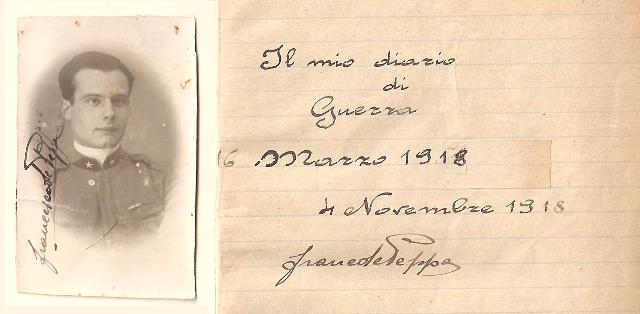 Francesco de Peppa
Il mio diario
di
Guerra
16 Marzo 1918
4 Novembre 1918
francedePeppa